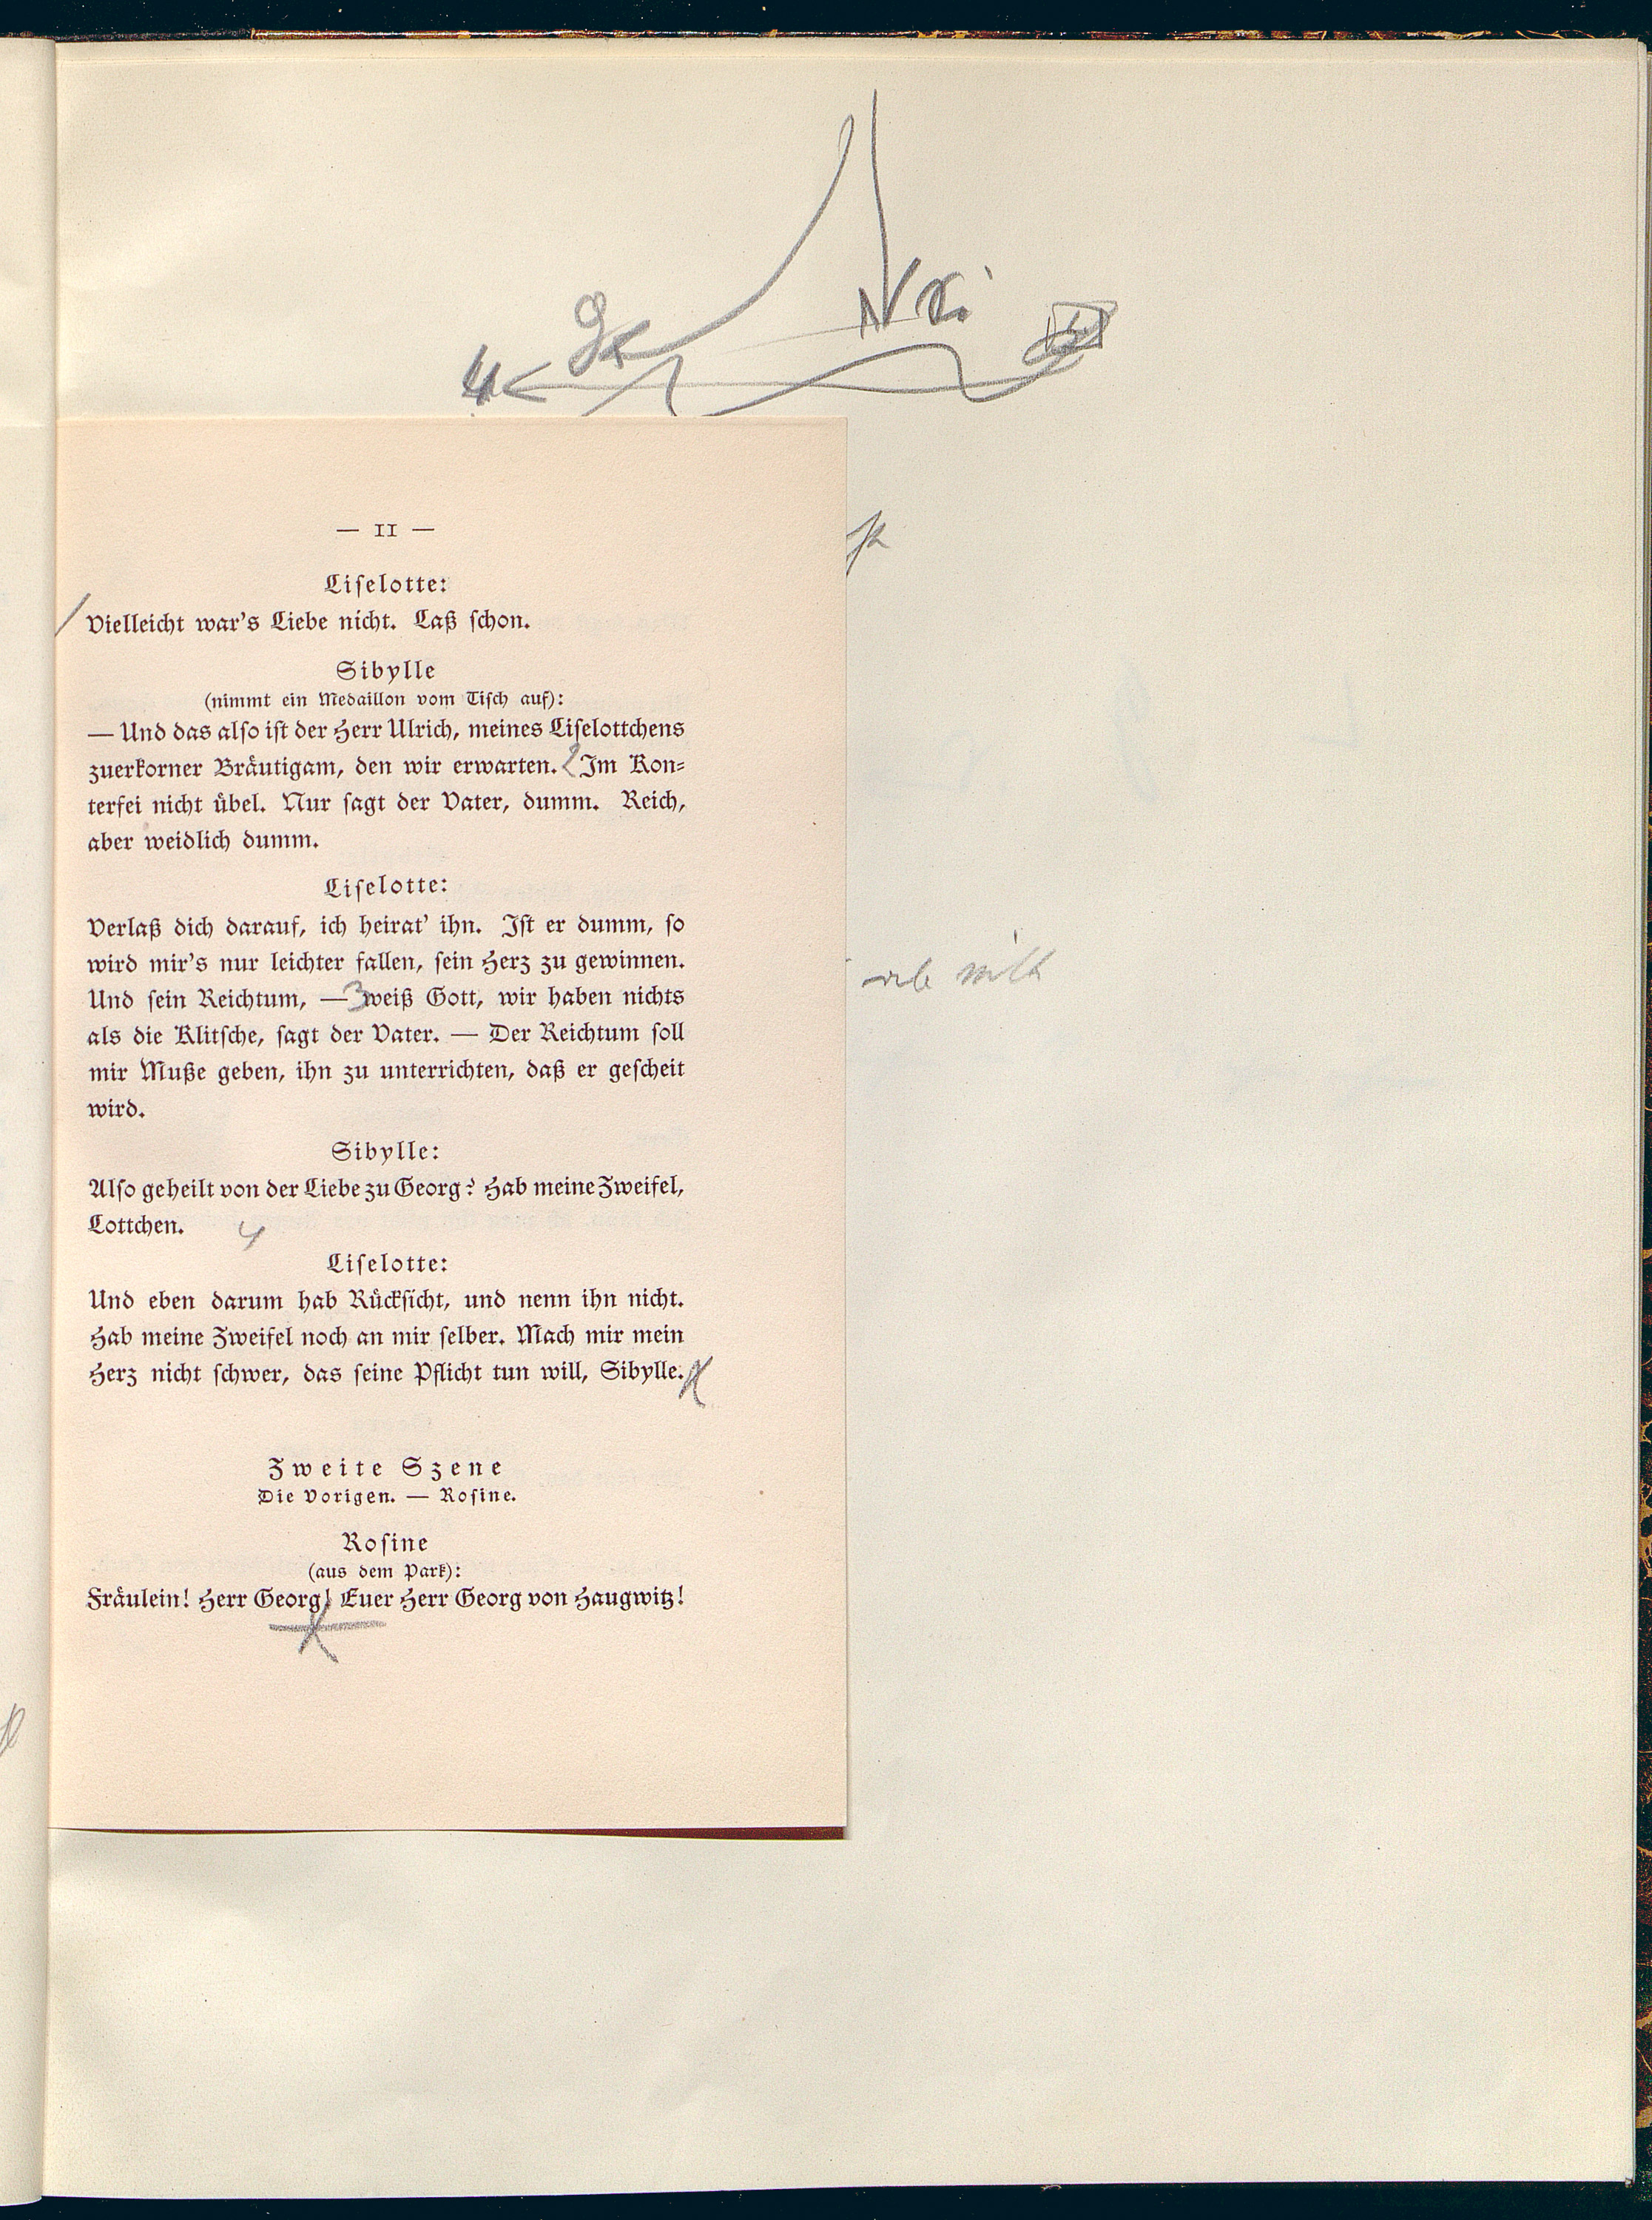 — 11 —
Liselotte:
Vielleicht war's Liebe nicht. Laß schon.
Sibylle
(nimmt ein Medaillon vom Tisch auf):
— Und das also ist der Herr Ulrich, meines Liselottchens
zuerkorner Bräutigam, den wir erwarten. 2 Im Kon-
terfei nicht übel. Nur sagt der Vater, dumm. Reich,
aber weidlich dumm.
Liselotte:
Verlaß dich darauf, ich heirat' ihn. Ist er dumm, so
wird mir's nur leichter fallen, sein Herz zu gewinnen.
Und sein Reichtum, — 3 weiß Gott, wir haben nichts
als die Klitsche, sagt der Vater. — Der Reichtum soll
mir Muße geben, ihn zu unterrichten, daß er gescheit
wird.
Sibylle:
Also geheilt von der Liebe zu Georg? Hab meine Zweifel,
Lottchen. 4
Liselotte:
Und eben darum hab Rücksicht, und nenn ihn nicht.
Hab meine Zweifel noch an mir selber. Mach mir mein
Herz nicht schwer, das seine Pflicht tun will, Sibylle.
Zweite Szene
Die Vorigen. — Rosine.
Rosine
(aus dem Park):
Fräulein! Herr Georg! Euer Herr Georg von Haugwitz!